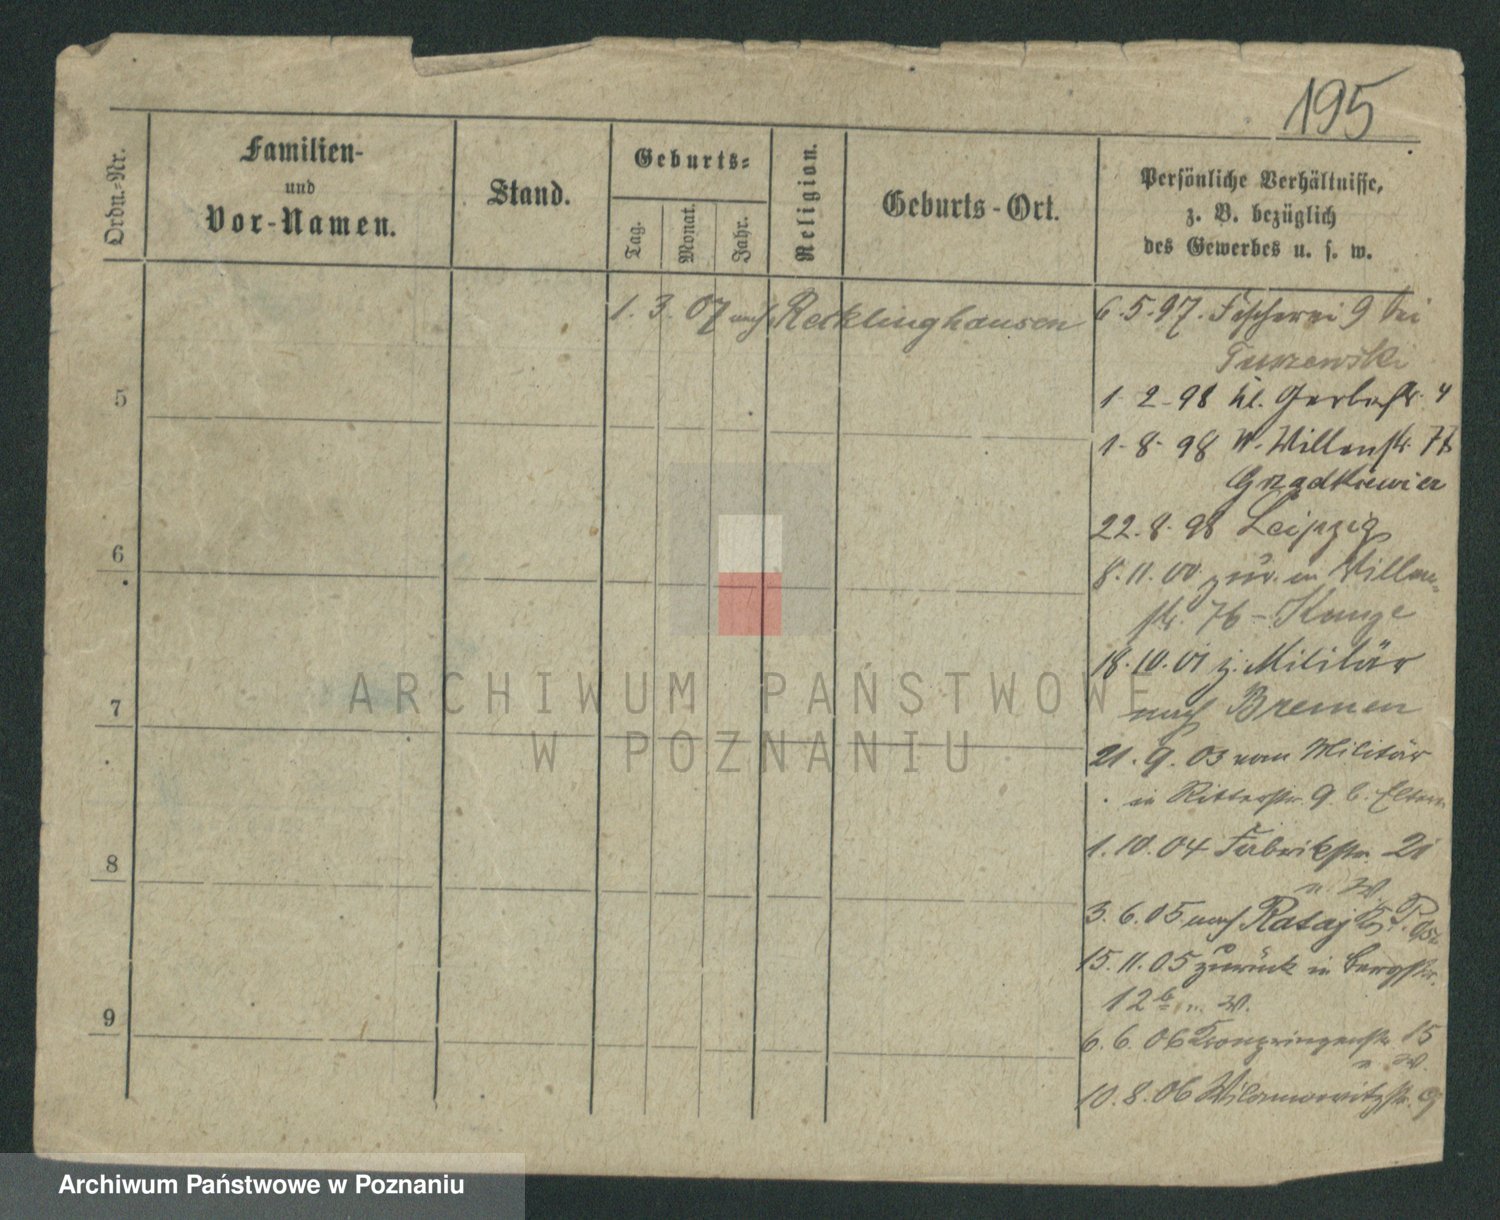 195
Ordn.-Nr.
Familien-
und
Vor-Namen.
Stand.
Geburts-
Tag.
Monat.
Jahr.
Religion.
Geburts-Ort.
Persönliche Verhältnisse,
z. B. bezüglich
des Gewerbes u. s. w.
1. 3. 07 nach Recklinghausen
6.5.97. Fischerei 9 bei
Tuszewski
1-2-98 kl. Gerberstr. 4
1-8-98 W.
22.8.98 Leipzig
8.11.00 zur. in
str. 76 -
18.10.01 z. Militär
nach Bremen
21.9.03 vom Militär
in Ritterstr. 9 b. Eltern
1.10.04 Fabrikstr. 21
n. W.
3.6.05 nach Rataj
15.11.05 zurück in Bergstr.
12b n. W.
6.6.06 Kronprinzenstr. 15
n. W.
10.8.06 Wilamowitzstr. 9
5
6
7
8
9
ARCHIWUM PAŃSTWOWE
W POZNANIU
Archiwum Państwowe w Poznaniu